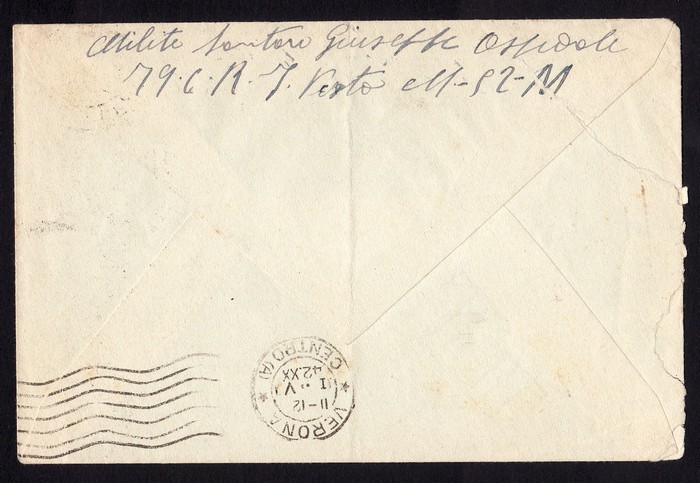 Milite Santoro Giuseppe Ospedale
79. C. R. I. Posta M-52-M
VERONA
CENTRO (A)
11-12
I..V
42.XX